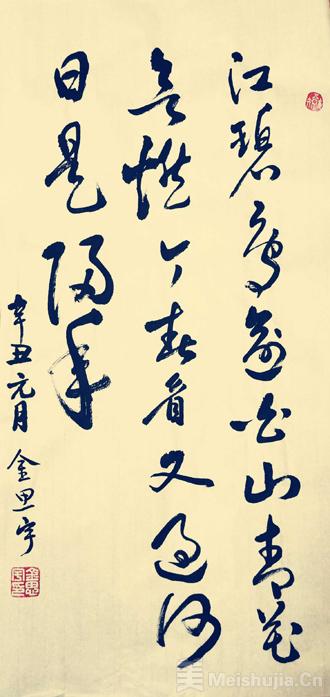 江碧鳥逾白山青花
欲燃今春看又過何
日是歸年
辛丑元月 金思宇
美 Meishujia.Cn